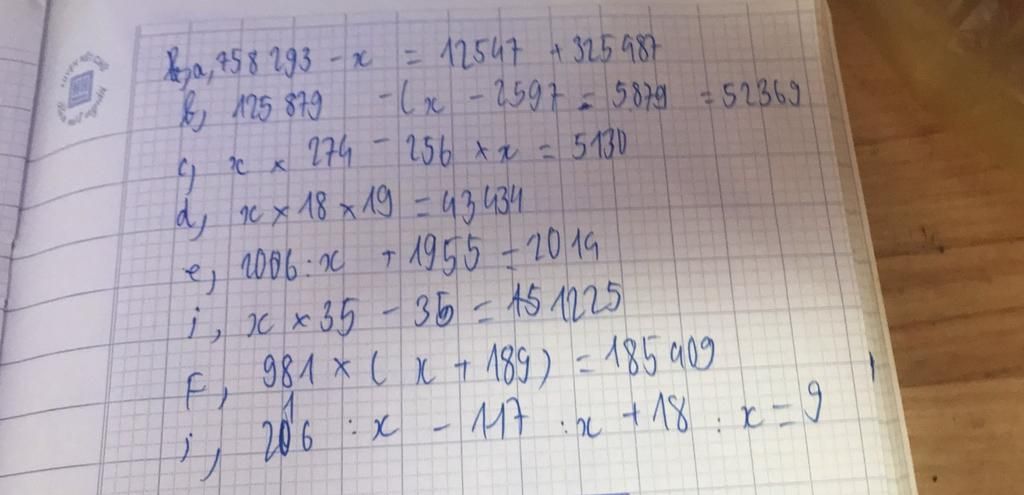 a, 758 293 - x = 12547 + 325 987
b, 125 879 - ( x - 2597 = 5879 = 52369
c, x × 274 - 256 × x = 5130
d, x × 18 × 19 = 43434
e, 2006 : x + 1955 = 2014
i, x × 35 - 35 = 151225
F, 981 × ( x + 189) = 185409
i, 216 : x - 117 : x + 18 : x = 9